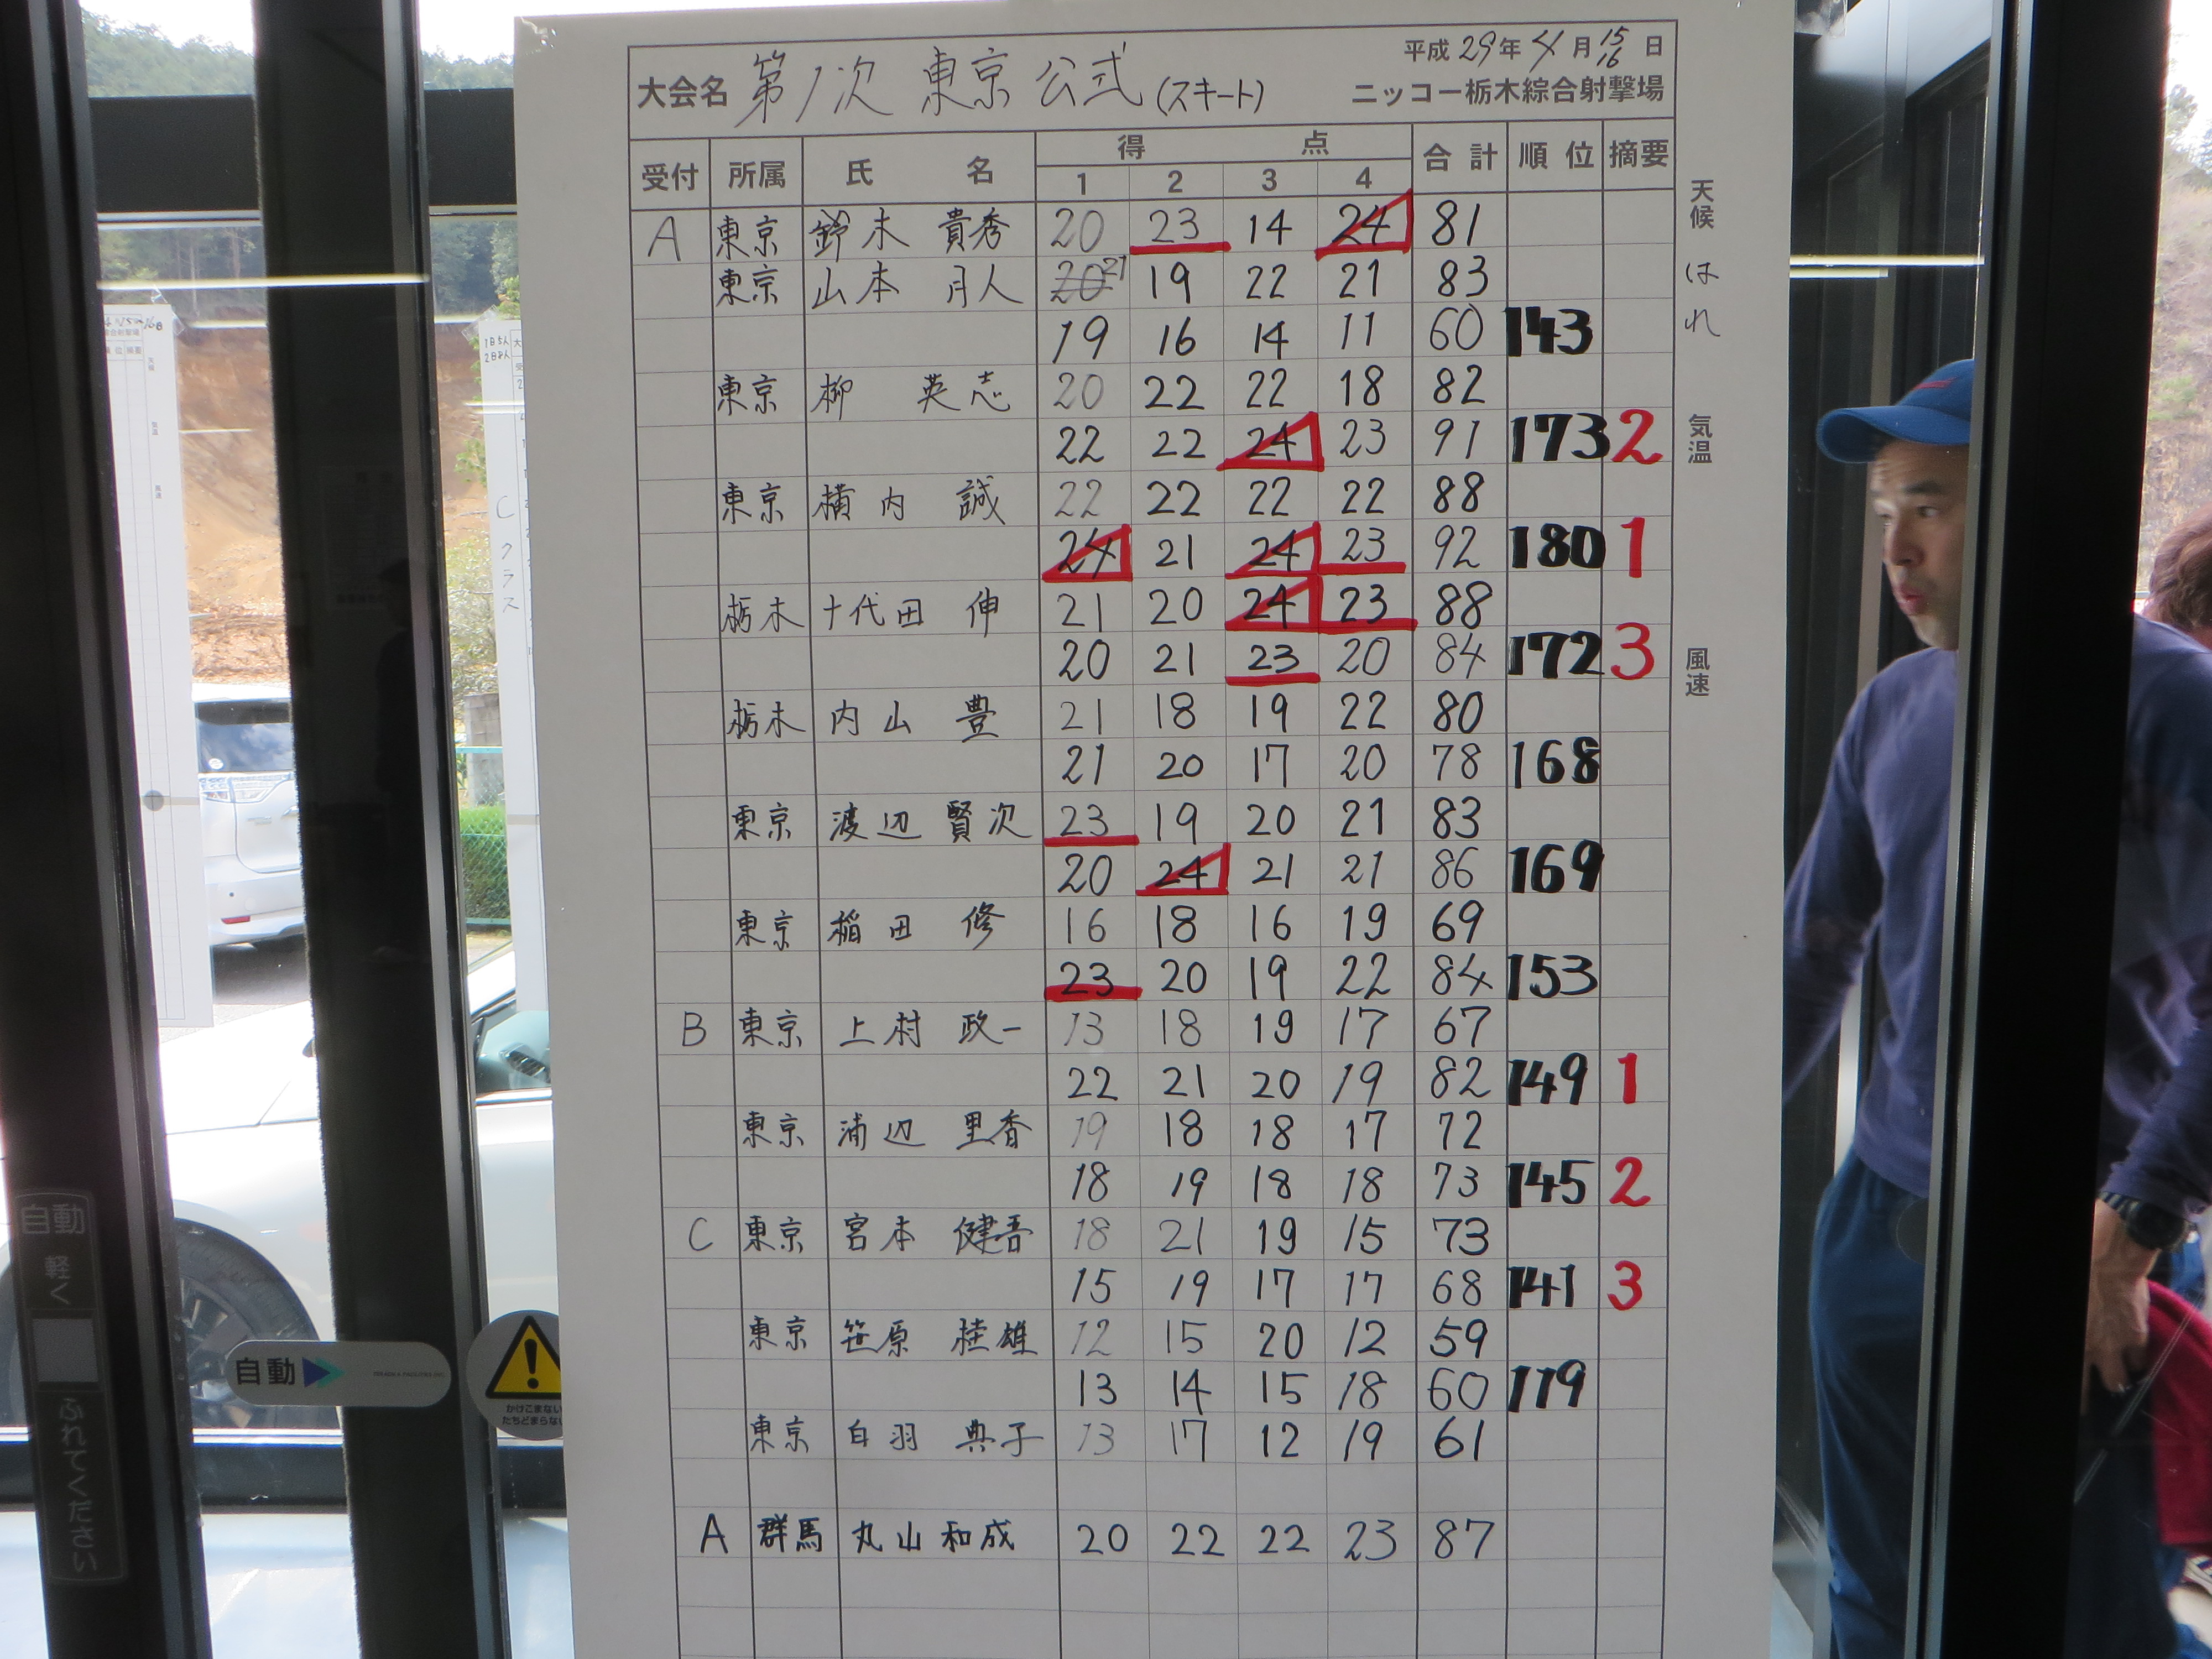 平成29年4月15 16日
大会名 第1次 東京 公式 (スキート) ニッコー栃木綜合射撃場
受付 所属 氏名 得点 合計 順位 摘要
1 2 3 4
A 東京 鈴木 貴秀 20 23 14 24 81
東京 山本 月人 20 21 19 22 21 83
19 16 14 11 60 143
東京 柳 英志 20 22 22 18 82
22 22 24 23 91 173 2
東京 横内 誠 22 22 22 22 88
24 21 24 23 92 180 1
栃木 十代田 伸 21 20 24 23 88
20 21 23 20 84 172 3
栃木 内山 豊 21 18 19 22 80
21 20 17 20 78 168
東京 渡辺 賢次 23 19 20 21 83
20 24 21 21 86 169
東京 稲田 修 16 18 16 19 69
23 20 19 22 84 153
B 東京 上村 政一 13 18 19 17 67
22 21 20 19 82 149 1
東京 浦辺 里香 19 18 18 17 72
18 19 18 18 73 145 2
C 東京 宮本 健吾 18 21 19 15 73
15 19 17 17 68 141 3
東京 笹原 桂雄 12 15 20 12 59
13 14 15 18 60 119
東京 白羽 典子 13 17 12 19 61
A 群馬 丸山 和成 20 22 22 23 87
天候 はれ
気温
風速
Cクラス
自動
軽く
ふれてください
自動
かけこまない
たちどまらない